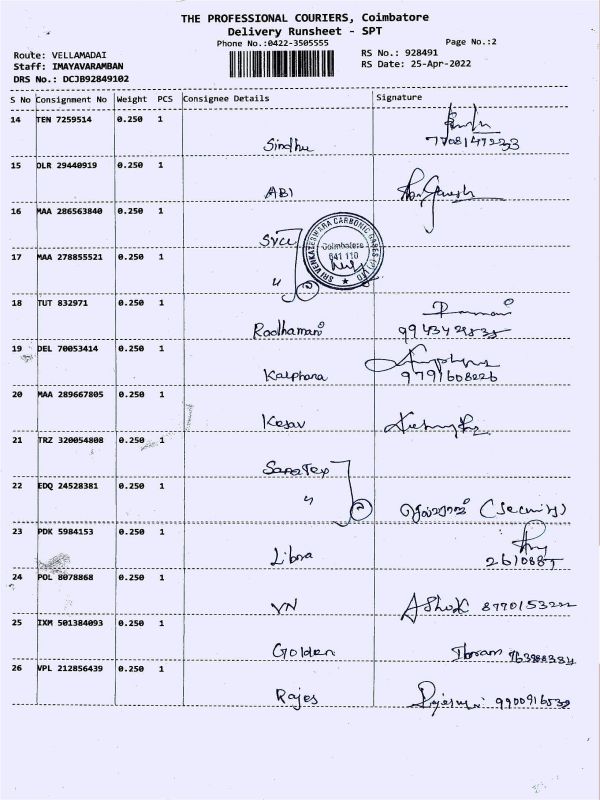 THE PROFESSIONAL COURIERS, Coimbatore
Delivery Runsheet - SPT
Phone No.:0422-3505555
Page No.:2
Route: VELLAMADAI
RS No.: 928491
Staff: IMAYAVARAMBAN
RS Date: 25-Apr-2022
DRS No.: DCJB92849102
S No Consignment No Weight PCS Consignee Details Signature
14 TEN 7259514 0.250 1
Sindhu 7708147233
15 DLR 29440919 0.250 1
ABI
16 MAA 286563840 0.250 1
SVCG
SRI VENKATESWARA CARBONIC GASES (P) LTD
Coimbatore
641 110
17 MAA 278855521 0.250 1
" 2
18 TUT 832971 0.250 1
Radhamani
19 DEL 70053414 0.250 1
Kalphana 9791608226
20 MAA 289667805 0.250 1
Kesav
21 TRZ 320054808 0.250 1
SaraTex
22 EDQ 24528381 0.250 1
" 2 (Security)
23 PDK 5984153 0.250 1
Libra
24 POL 8078868 0.250 1
VN AShoK
25 IXM 501384093 0.250 1
Golden
26 VPL 212856439 0.250 1
Rajes